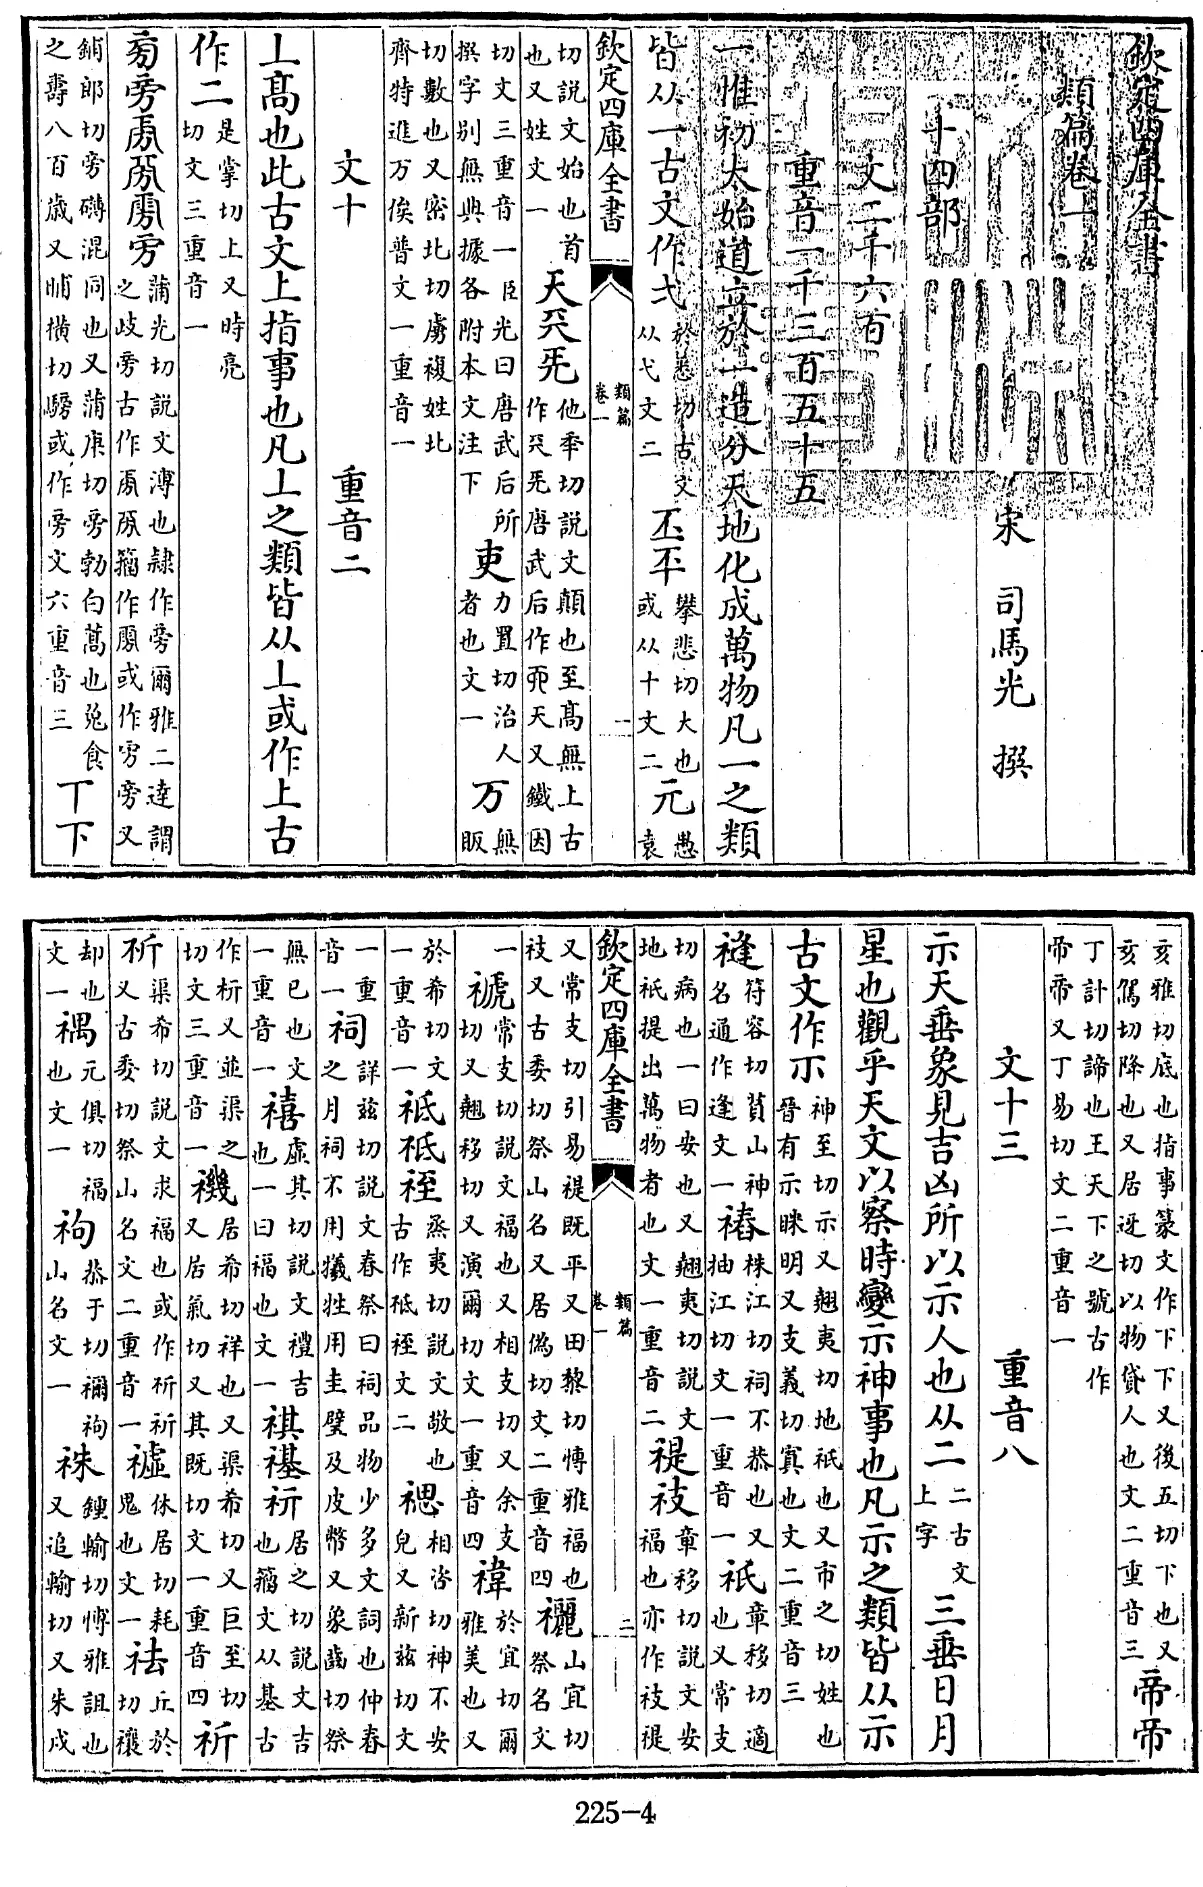 欽定四庫全書
類篇卷一
宋 司馬光 撰
十四部
文二千六百
重音一千三百五十五
一惟初太始道立於一造分天地化成萬物凡一之類
皆从一古文作弌於悉切古文从弋文二丕㔻攀悲切大也或从十文二元愚袁
欽定四庫全書 類篇卷一 一
切說文始也首也又姓文一天兲兂他秊切說文顛也至髙無上古作兲兂唐武后作天又鐵因
切文三重音一臣光曰唐武后所撰字別無典據各附本文注下吏力置切治人者也文一万無販
切數也又密北切虜複姓北齊特進万俟普文一重音一
文十 重音二
丄髙也此古文上指事也凡丄之類皆从丄或作上古
作二是掌切上又時亮切文三重音一
旁雱蒲光切說文溥也隸作旁爾雅二達謂之歧旁古作籀作或作雱旁又
鋪郎切旁礴混同也又蒲庚切旁勃白蒿也兔食之壽八百歲又晡橫切騯或作旁文六重音三丅下
亥雅切底也指事篆文作下下又後五切下也又亥駕切降也又居迓切以物貸人也文二重音三帝帝
丁計切諦也王天下之號古作帝帝又丁易切文二重音一
文十三 重音八
示天垂象見吉凶所以示人也从二二古文上字三垂日月
星也觀乎天文以察時變示神事也凡示之類皆从示
古文作𥘅神至切示又翹夷切地祇也又市之切姓也晉有示眯明又支義切寘也文二重音三
䙜符容切山神名通作逢文一株江切祠不恭也又抽江切文一重音一祇章移切適也又常支
切病也一曰安也又翹夷切說文地祇提出萬物者也文一重音二禔衼章移切說文安福也亦作衼禔
又常支切引易禔既平又田黎切博雅福也衼又古委切祭山名又居偽切文二重音四山宜切祭名文
欽定四庫全書 類篇卷一 二
一禠常支切說文福也又相支切又余支切又翹移切又演爾切文一重音四禕於宜切爾雅美也又
於希切文一重音一祗秪𥙆蒸夷切說文敬也古作秪𥙆文二禗相咨切神不安皃又新兹切文
一重音一祠詳兹切說文春祭曰祠品物少多文詞也仲春之月祠不用犧牲用圭璧及皮幣又象齒切祭
無已也文一重音一禧虛其切說文禮吉也一曰福也文一祺禥居之切說文吉也籀文从基古
作又並渠之切文三重音一禨居希切祥也又渠希切又巨至切又居氣切又其既切文一重音四祈
渠希切說文求福也或作祈又古委切祭山名文二重音一休居切耗鬼也文一祛丘於切禳
却也文一禑元俱切福也文一袧恭于切禰袧山名文一祩鍾輸切博雅詛也又追輸切又朱戍
225-4